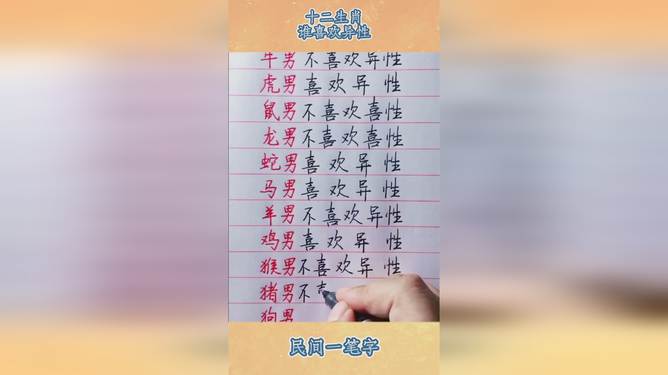 十二生肖
谁喜欢异性
牛男不喜欢异性
虎男喜欢异性
鼠男不喜欢喜性
龙男不喜欢喜性
蛇男喜欢异性
马男喜欢异性
羊男不喜欢异性
鸡男喜欢异性
猴男不喜欢异性
猪男不
狗男
民间一笔字